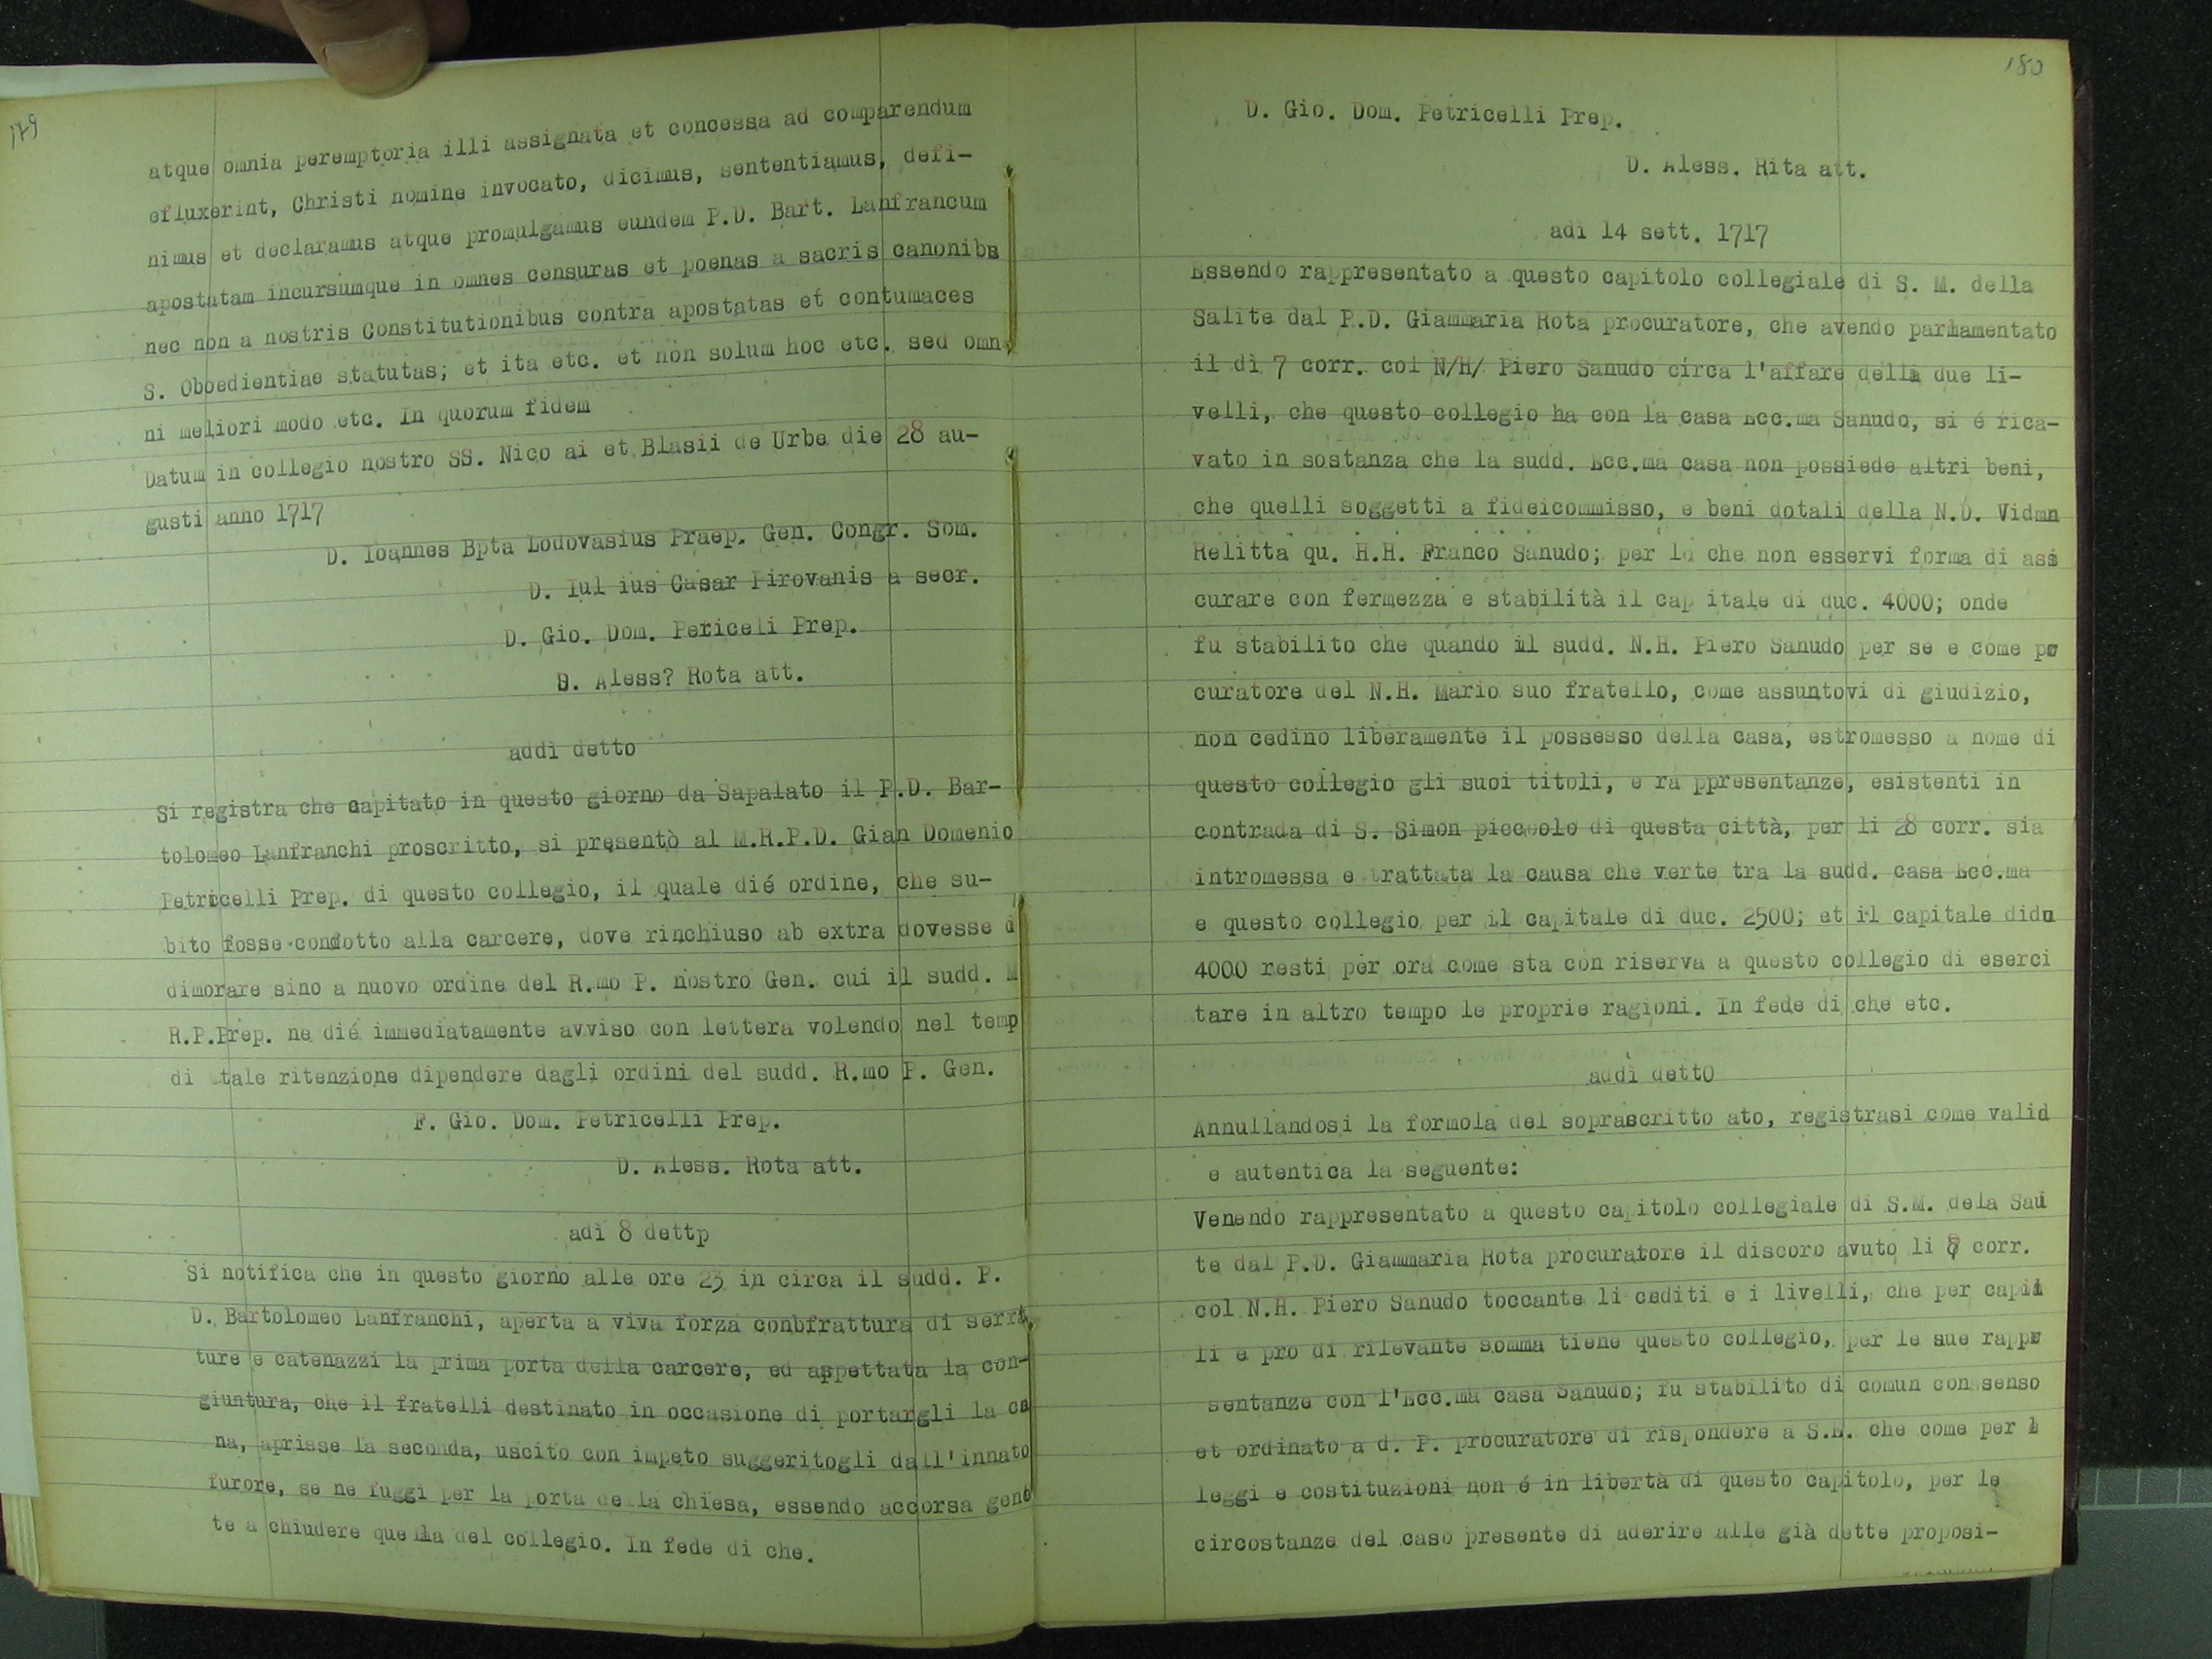 179
atque omnia peremptoria illi assignata et concessa ad comparendum
efluxerint, Christi nomine invocato, dicimus, sententiamus, defi-
nimus et declaramus atque promulgamus eundem P.D. Bart. Lanfrancum
apostatam incursumque in omnes censuras et poenas a sacris canonibs
nec non a nostris Constitutionibus contra apostatas et contumaces
S. Oboedientiae statutas; et ita etc. et non solum hoc etc. sed omn
ni meliori modo etc. In quorum fidem
Datum in collegio nostro SS. Nico ai et Blasii de Urbe die 28 au-
gusti anno 1717
D. Ioannes Bpta Lodovasius Praep. Gen. Congr. Som.
D. Iul ius Casar Pirovanis a secr.
D. Gio. Dom. Periceli Prep.
D. Aless? Rota att.
addì detto
Si registra che capitato in questo giorno da Sapalato il P.D. Bar-
tolomeo Lanfranchi proscritto, si presentò al M.R.P.D. Gian Domenio
Petricelli Prep. di questo collegio, il quale dié ordine, che su-
bito fosse condotto alla carcere, dove rinchiuso ab extra dovesse d
dimorare sino a nuovo ordine del R.mo P. nostro Gen. cui il sudd. M
R.P.Prep. ne dié immediatamente avviso con lettera volendo nel temp
di tale ritenzione dipendere dagli ordini del sudd. R.mo P. Gen.
F. Gio. Dom. Petricelli Prep.
D. Aless. Rota att.
adì 8 dettp
Si notifica che in questo giorno alle ore 23 in circa il sudd. P.
D. Bartolomeo Lanfranchi, aperta a viva forza conbfrattura di serra
ture e catenazzi la prima porta della carcere, ed aspettata la con-
giuntura, che il fratelli destinato in occasione di portargli la ce
na, aprisse la seconda, uscito con impeto suggeritogli dall'innato
furore, se ne fuggì per la porta della chiesa, essendo accorsa gent
te a chiudere quella del collegio. In fede di che.
180
D. Gio. Dom. Petricelli Prep.
D. Aless. Rita att.
adì 14 sett. 1717
Essendo rappresentato a questo capitolo collegiale di S. M. della
Salite dal P.D. Giammaria Rota procuratore, che avendo parlamentato
il dì 7 corr. col N/H/ Piero Sanudo circa l'affare della due li-
velli, che questo collegio ha con la casa Ecc.ma Sanudo, si é rica-
vato in sostanza che la sudd. Ecc.ma casa non possiede altri beni,
che quelli soggetti a fideicommisso, e beni dotali della N.D. Vidmn
Relitta qu. H.H. Franco Sanudo; per lo che non esservi forma di assi
curare con fermezza e stabilità il cap itale di duc. 4000; onde
fu stabilito che quando il sudd. N.H. Piero Sanudo per se e come pr
curatore del N.H. Mario suo fratello, come assuntovi di giudizio,
non cedino liberamente il possesso della casa, estromesso a nome di
questo collegio gli suoi titoli, e ra ppresentanze, esistenti in
contrada di S. Simon piccolo di questa città, per li 28 corr. sia
intromessa e trattata la causa che verte tra la sudd. casa Ecc.ma
e questo collegio per il capitale di duc. 2500; et il capitale didu
4000 resti per ora come sta con riserva a questo collegio di eserci
tare in altro tempo le proprie ragioni. In fede di che etc.
addì dettO
Annullandosi la formola del soprascritto ato, registrasi come valid
e autentica la seguente:
Venendo rappresentato a questo capitolo collegiale di S.M. dela Sau
te dal P.D. Giammaria Rota procuratore il discoro avuto li 8 corr.
col N.H. Piero Sanudo toccante li cediti e i livelli, che per capit
li e pro di rilevante somma tiene questo collegio, per le sue rappr
sentanze con l'Ecc.ma casa Sanudo; fu stabilito di comun conssenso
et ordinato a d. P. procuratore di rispondere a S.E. che come per l
leggi e costituzioni non é in libertà di questo capitolo, per le
circostanze del caso presente di aderire alle già dette proposi-